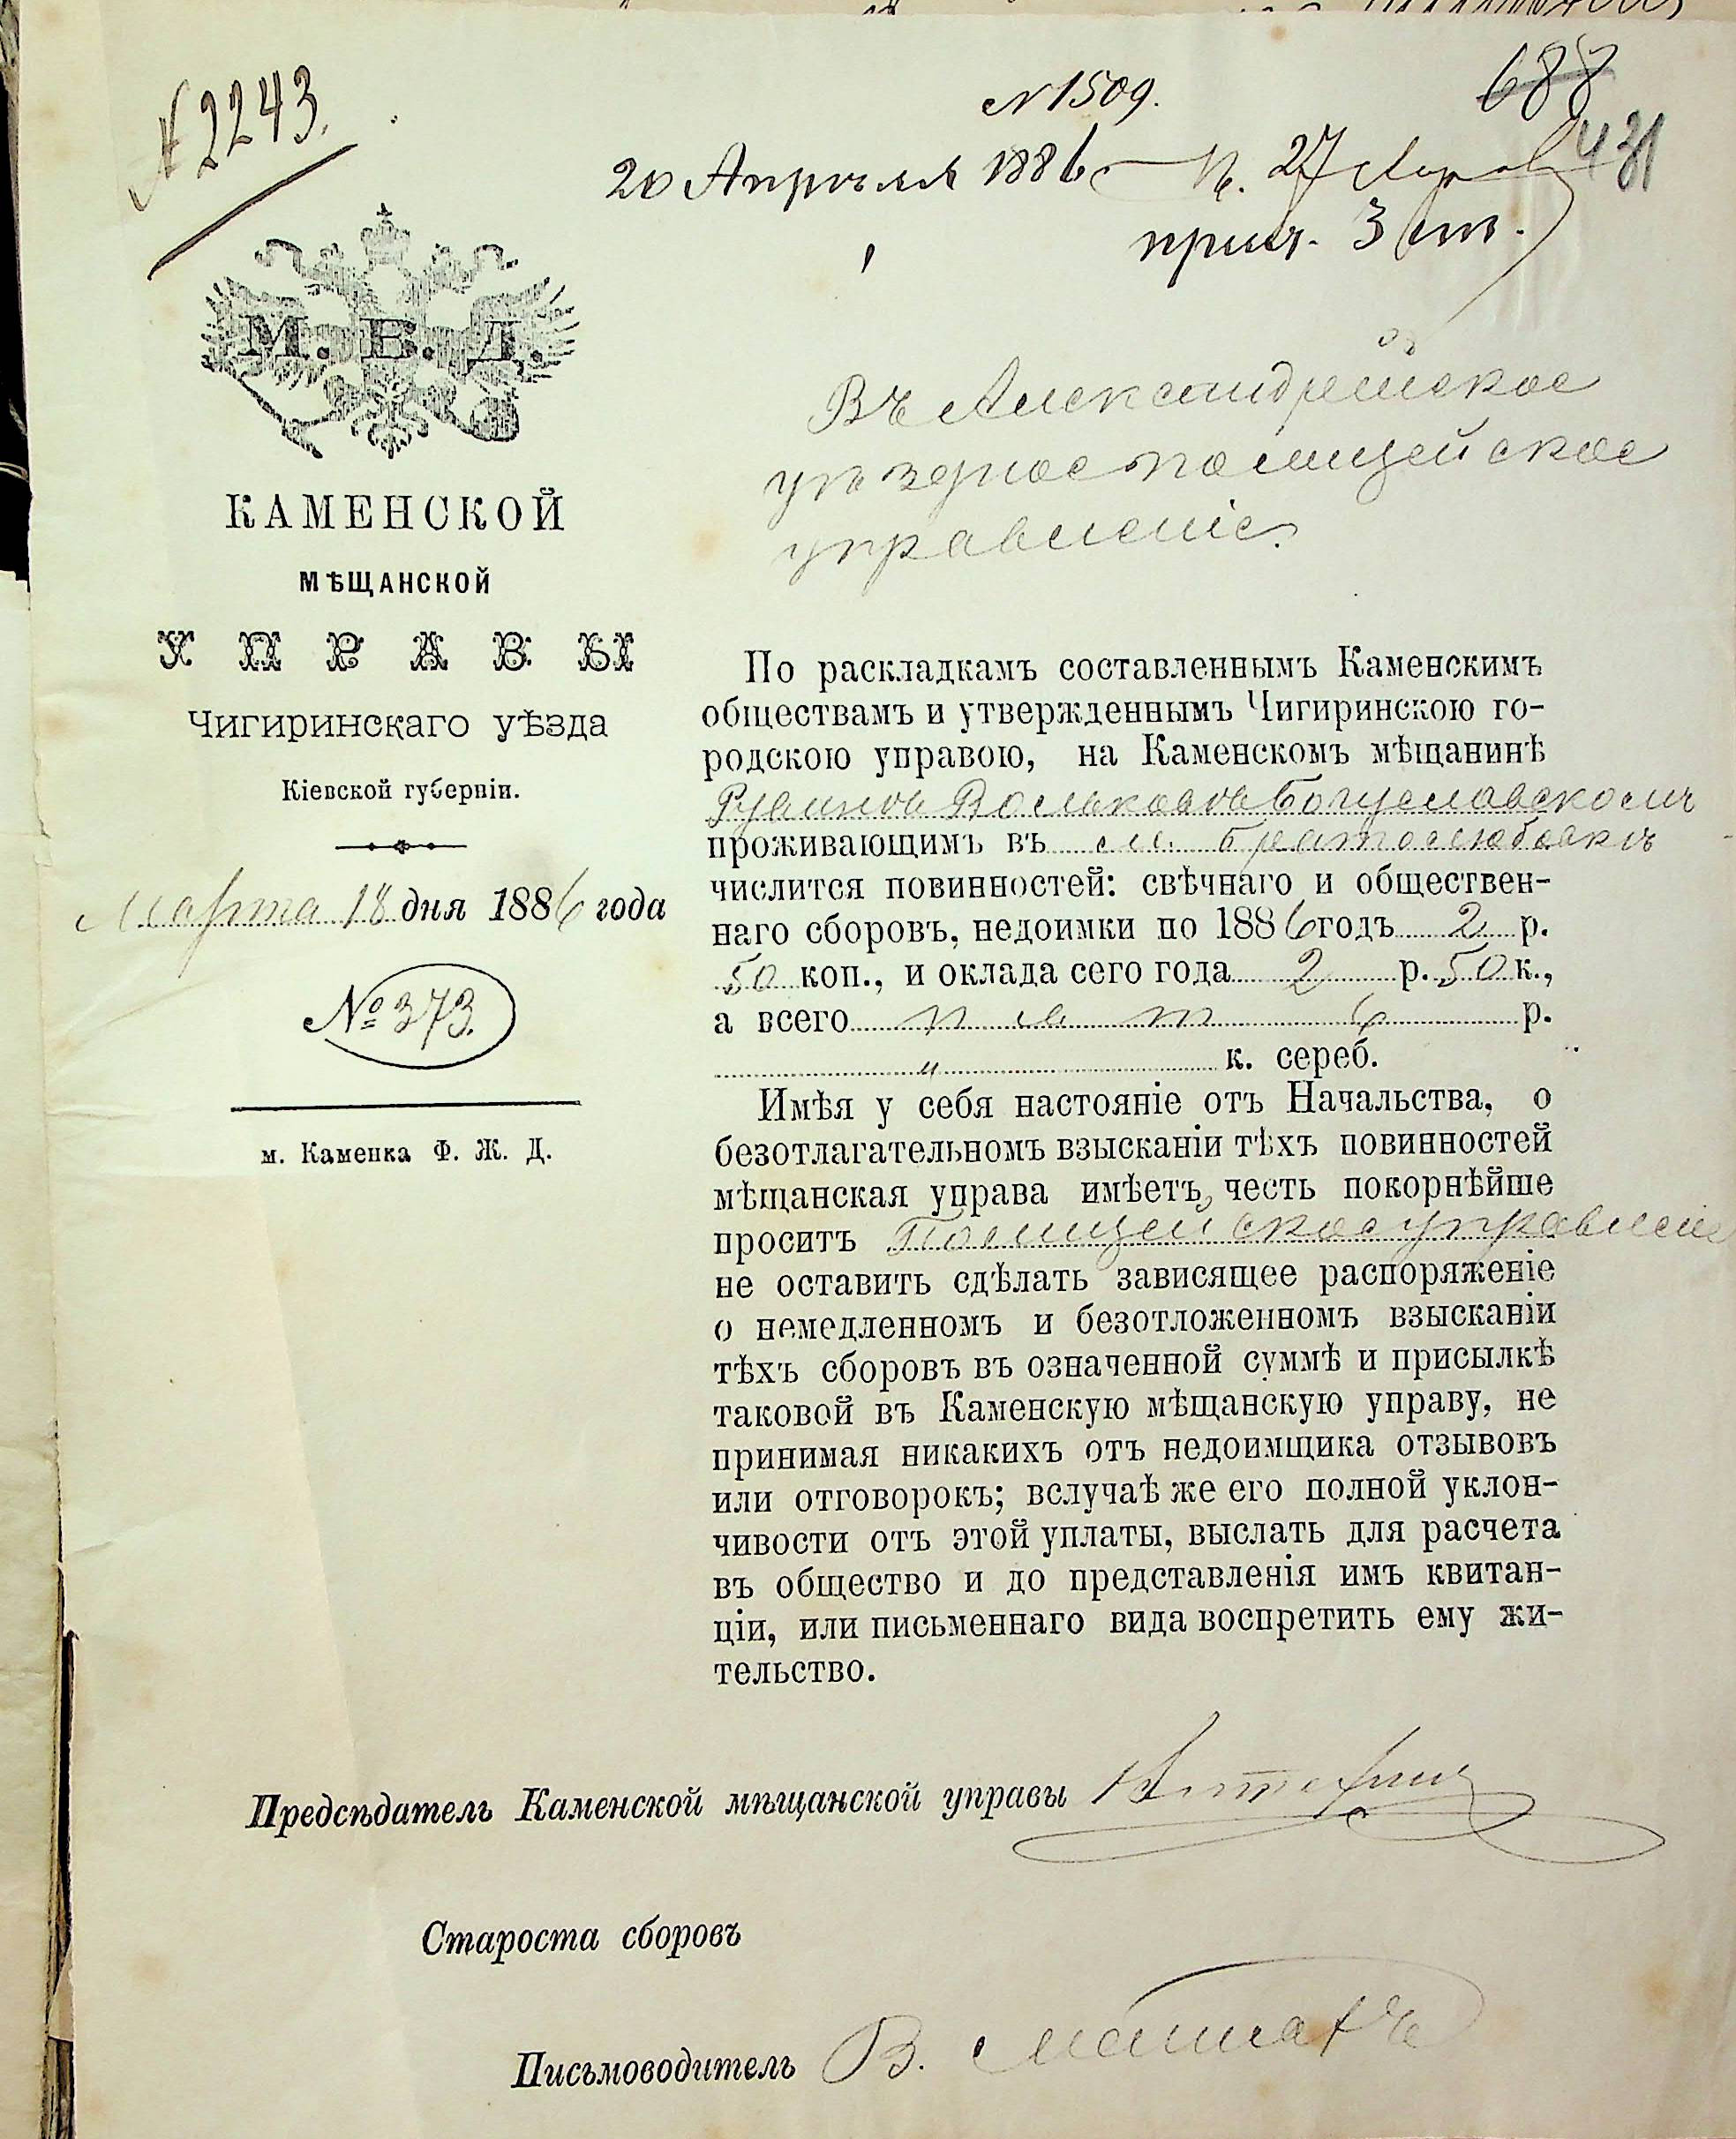 № 2243.
№ 1509.
688
431
20 Апрѣля 1886 г. 27
3 ст.
М. В. Д.
КАМЕНСКОЙ
МѢЩАНСКОЙ
УПРАВЫ
Чигиринскаго уѣзда
Кіевской губерніи.
Марта 18 дня 1886 года
№ 373.
м. Каменка Ф. Ж. Д.
Въ Александрійское
уѣздное полицейское
управленіе.
По раскладкамъ составленнымъ Каменскимъ
обществамъ и утвержденнымъ Чигиринскою го-
родскою управою, на Каменскомъ мѣщанинѣ
Вольковѣ Богуславскомъ
проживающимъ въ м. Братолюбовкѣ
числится повинностей: свѣчнаго и обществен-
наго сборовъ, недоимки по 1886 годъ 2 р.
50 коп., и оклада сего года 2 р. 50 к.,
а всего пять р.
" к. сереб.
Имѣя у себя настояніе отъ Начальства, о
безотлагательномъ взысканіи тѣхъ повинностей
мѣщанская управа имѣетъ честь покорнѣйше
проситъ Полицейское управленіе
не оставить сдѣлать зависящее распоряженіе
о немедленномъ и безотложенномъ взысканіи
тѣхъ сборовъ въ означенной суммѣ и присылкѣ
таковой въ Каменскую мѣщанскую управу, не
принимая никакихъ отъ недоимщика отзывовъ
или отговорокъ; вслучаѣ же его полной уклон-
чивости отъ этой уплаты, выслать для расчета
въ общество и до представленія имъ квитан-
ціи, или письменнаго вида воспретить ему жи-
тельство.
Предсѣдатель Каменской мѣщанской управы
Староста сборовъ
Письмоводитель В.